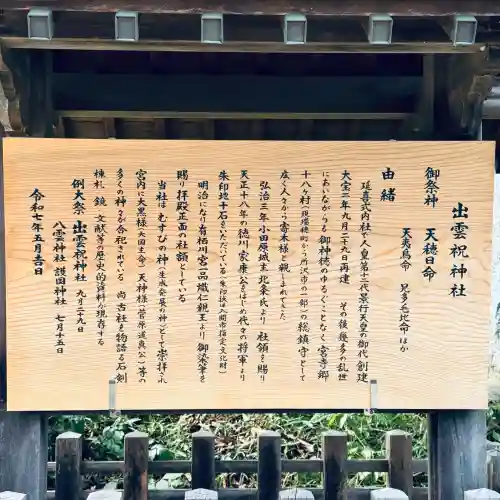 出雲祝神社
御祭神　天穂日命
天夷鳥命　兄多毛比命　ほか
由緒
延喜式内社で人皇第十二代景行天皇の御代創建
大宝二年九月二十九日再建　その後幾多の乱世
にあいながらも御神徳のゆるぐことなく宮寺郷
十八ヶ村（瑞穂町から所沢市の一部）の総鎮守として
広く人々から寄木様と親しまれてきた
弘治三年小田原城主北条氏より　社領を賜り
天正十八年の徳川家康公をはじめ代々の将軍より
朱印地十石をいただいている（朱印状は入間市指定文化財）
明治になり有栖川宮一品熾仁親王より御染筆を
賜り拝殿正面の社額としている
当社はむすびの神（生成発展の神）として崇拝され
宮内に大黒様（大国主命）天神様（菅原道真公）等の
多くの神々が合祀されている　尚古社を物語る石剣
棟札　鏡　文献等の歴史的資料が現存する
例大祭　出雲祝神社　九月二十九日
八雲神社　護国神社　七月十五日
令和七年五月吉日